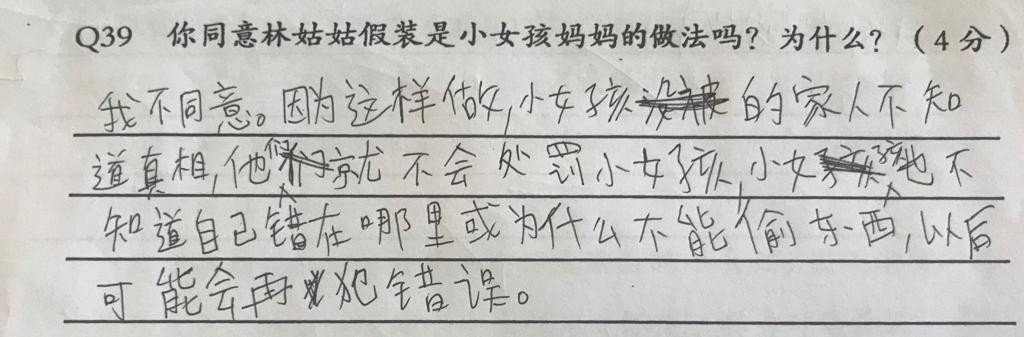 Q39 你同意林姑姑假装是小女孩妈妈的做法吗？为什么？（4分）
我不同意。因为这样做,小女孩的家人不知
道真相,他们就不会处罚小女孩,小女孩也不
知道自己错在哪里或为什么不能偷东西,以后
可能会再犯错误。